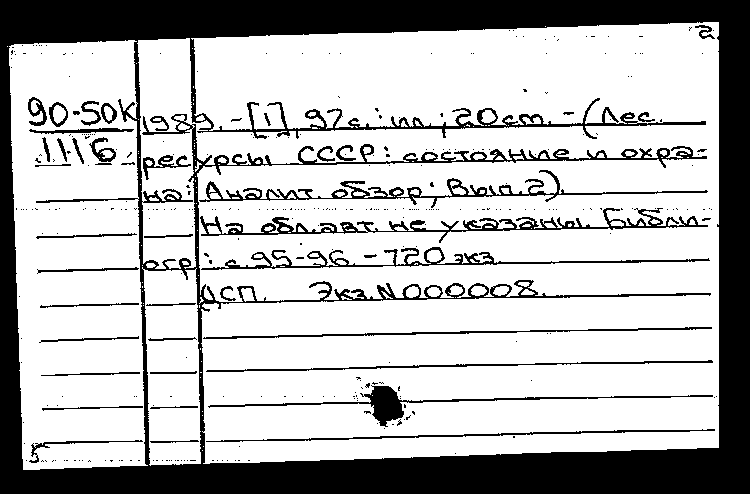 2.
90-50К 1989. - [1], 97 с. : ил. ; 20 cm. - (Лес.
1116 ресурсы СССР: состояние и охра-
на: Аналит. обзор; Вып. 2).
На обл. авт. не указаны. Библи-
огр.: с. 95-96 - 720 экз.
ДСП. Экз. N 000008.
5